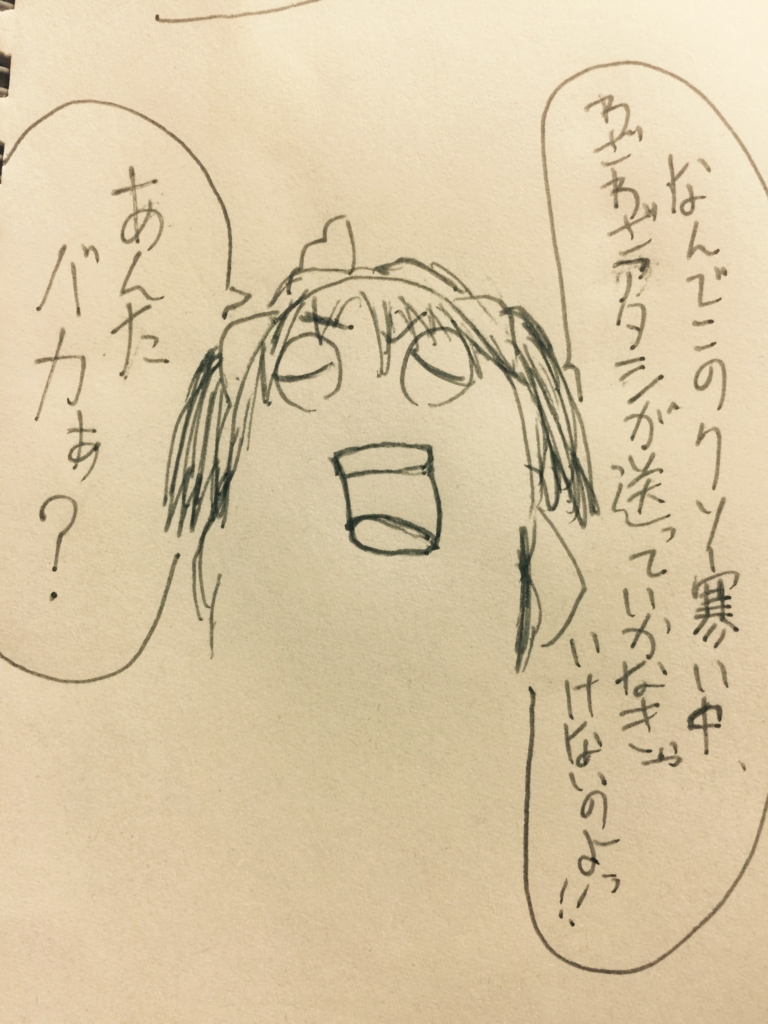 なんでこのクソ寒い中、
わざわざアタシが送っていかなきゃ
いけないのよっ!!
あんた
バカぁ?